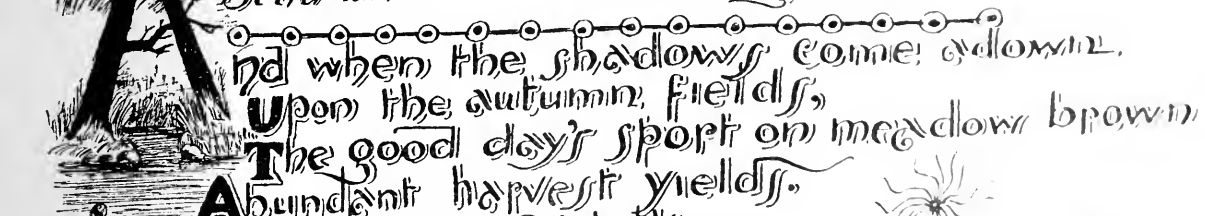 And when the shadows come adown.
Upon the autumn fields,
The good day's sport on meadow brown
Abundant harvest yields.